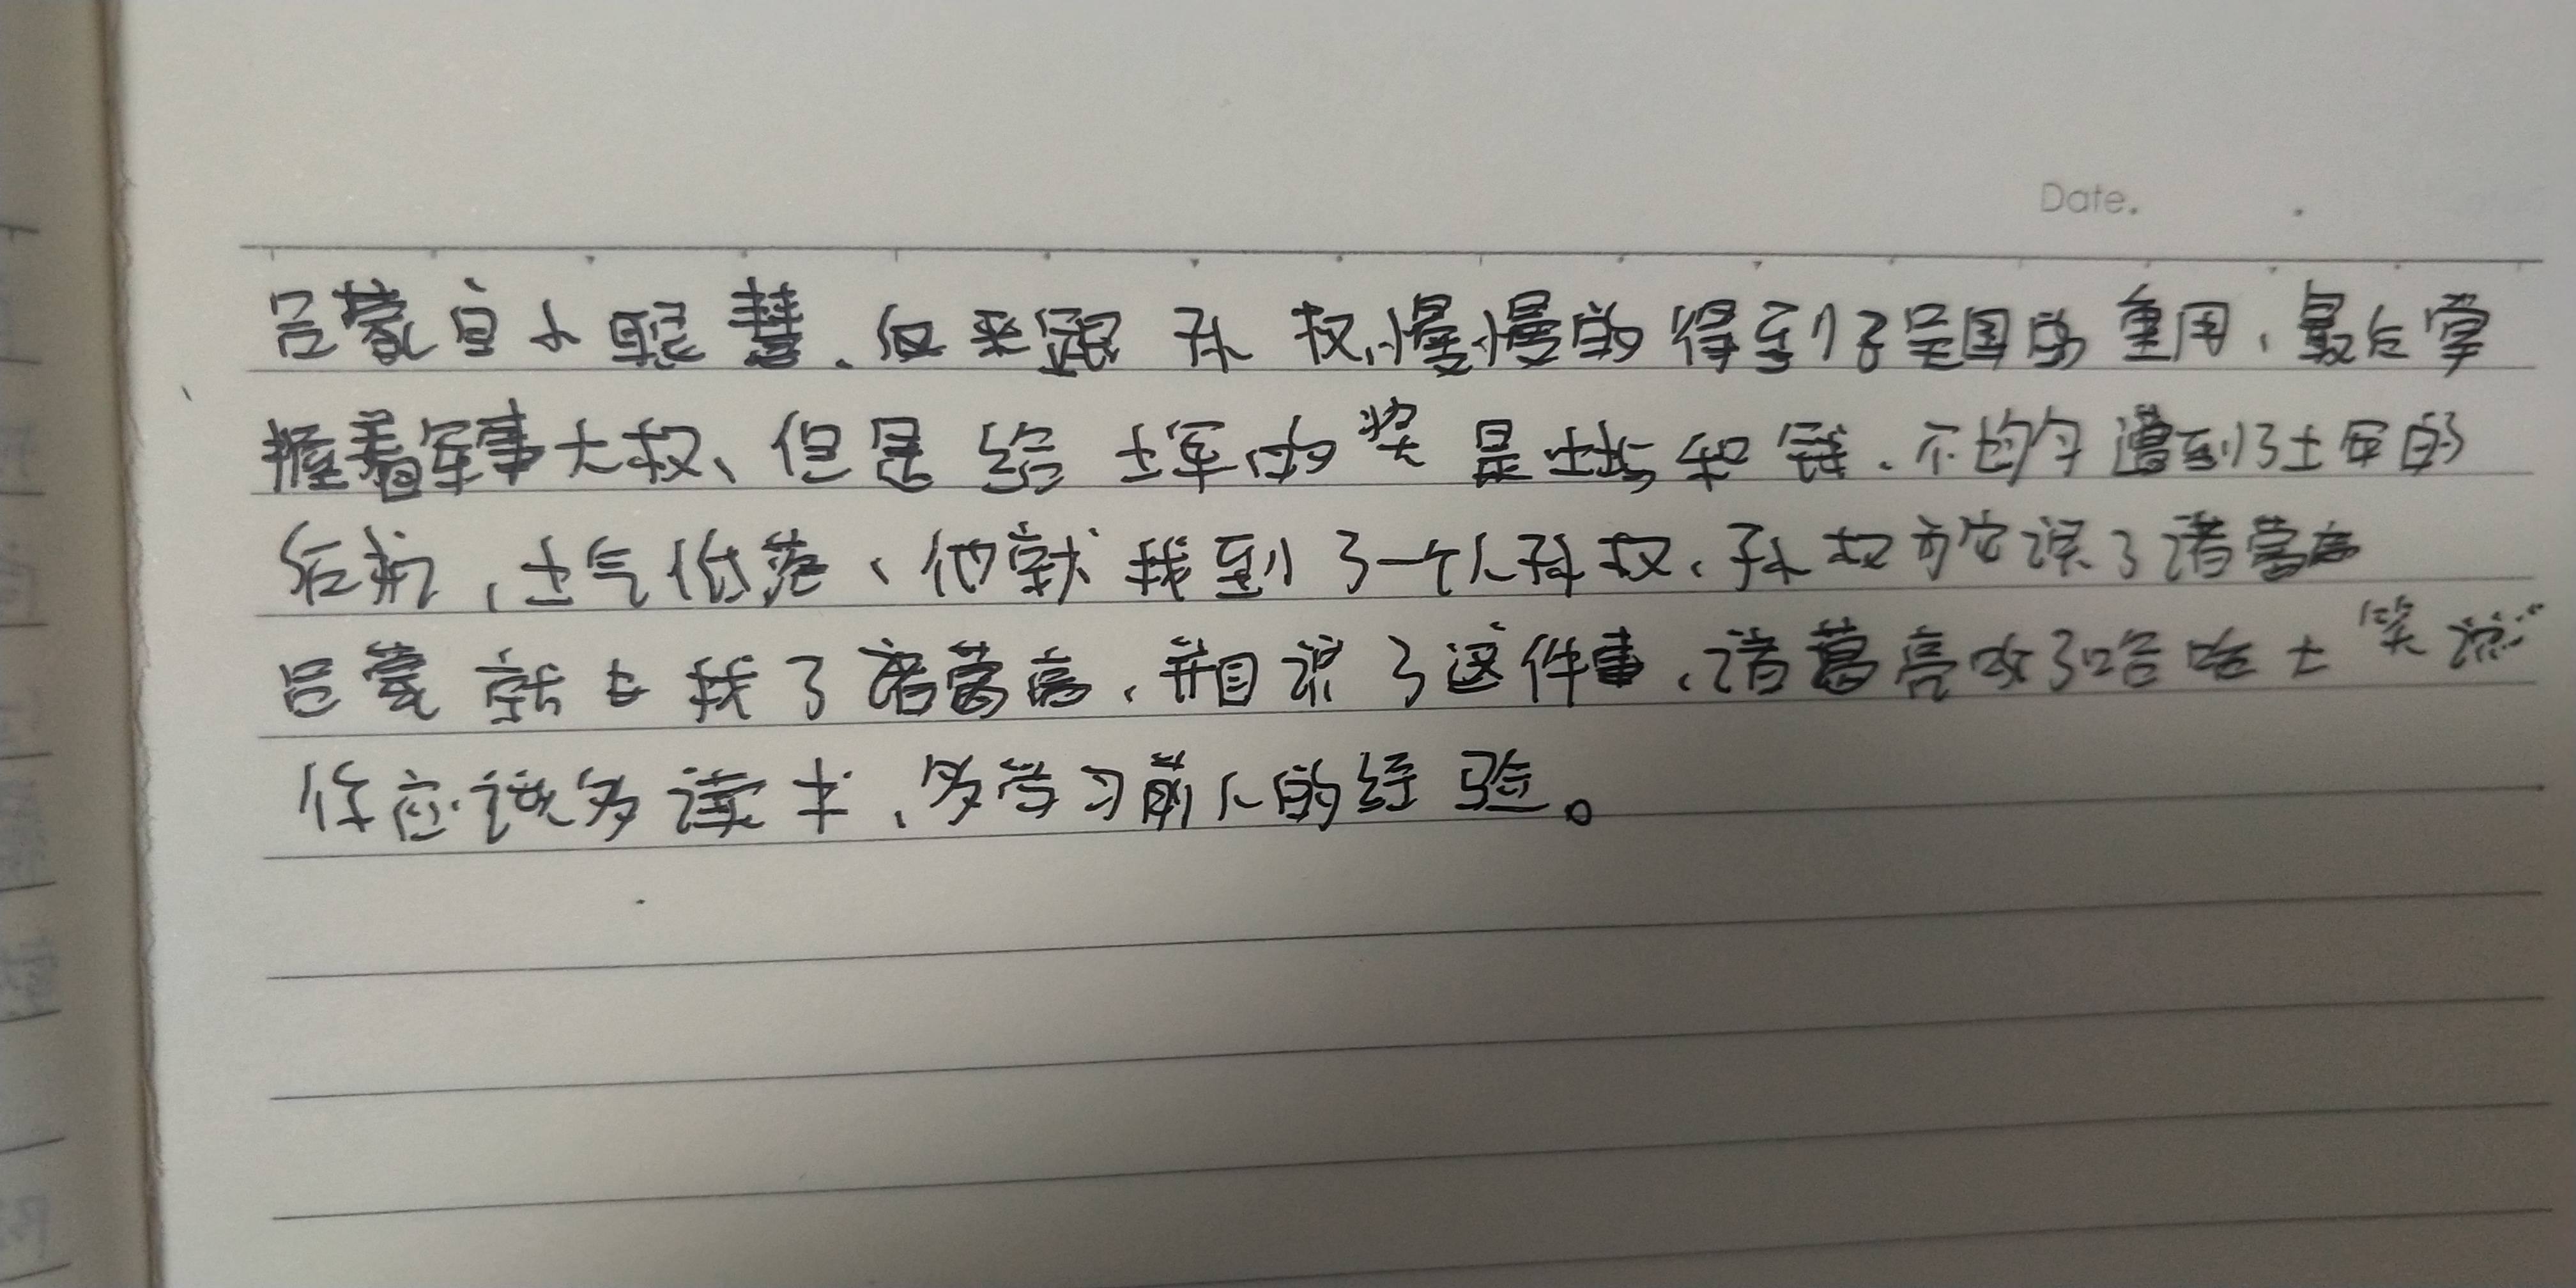 Date.
吕蒙自小聪慧、后来跟孙权,慢慢的得到了吴国的重用,最后掌
握着军事大权、但是给士军的奖是土地和钱、不均匀遭到了士军的
后抗,士气低落、他就找到了一个人孙权、孙权说了诸葛亮
吕蒙就去找了诸葛亮、并且说了这件事、诸葛亮哈哈大笑说:“
你应该多读书、多学习前人的经验。